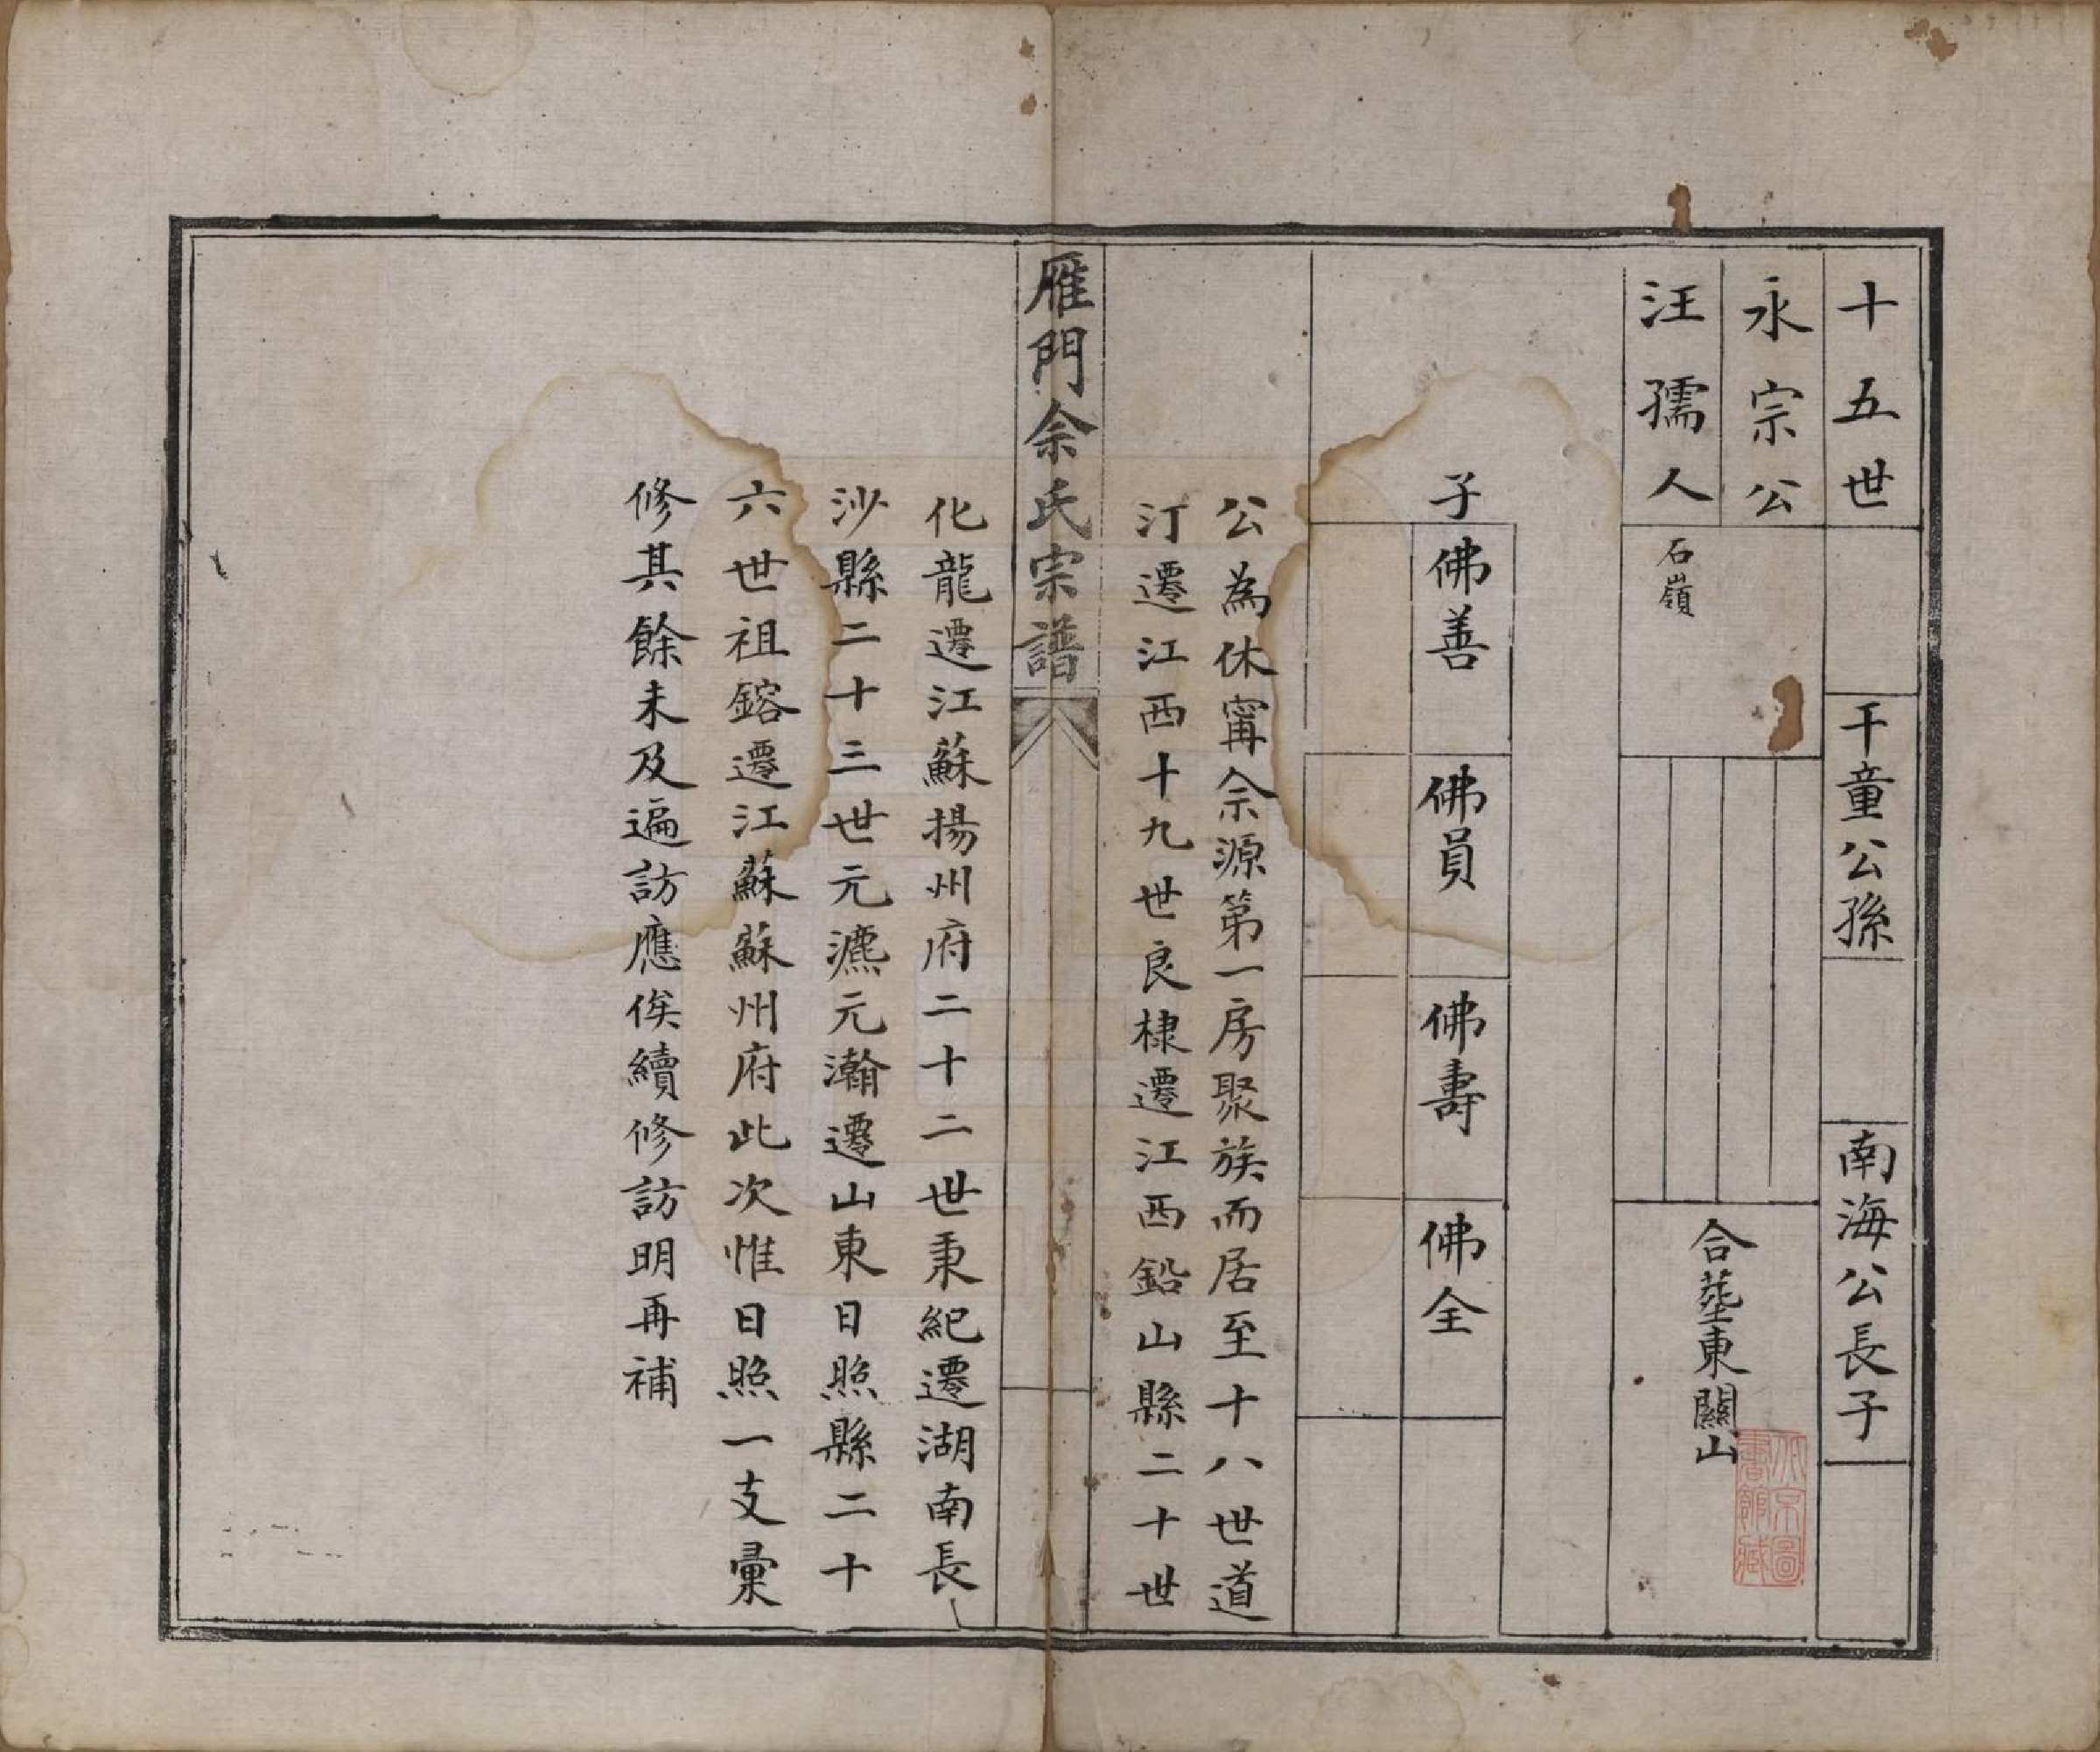 十五世 千童公孫 南海公長子
永宗公
汪孺人 石嶺 合塟東關山
子 佛善 佛員 佛壽 佛全
公為休甯佘源第一房聚族而居至十八世道
汀遷江西十九世良棣遷江西鉛山縣二十世
雁門佘氏宗譜
化龍遷江蘇揚州府二十二世秉紀遷湖南長
沙縣二十三世元瀌元瀚遷山東日照縣二十
六世祖鎔遷江蘇蘇州府此次惟日照一支彙
修其餘未及遍訪應俟續修訪明再補
北京圖書館藏